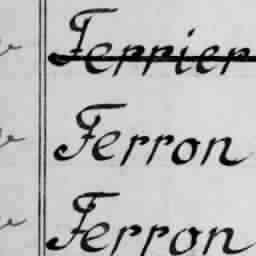 Ferrier
Ferron
Ferron